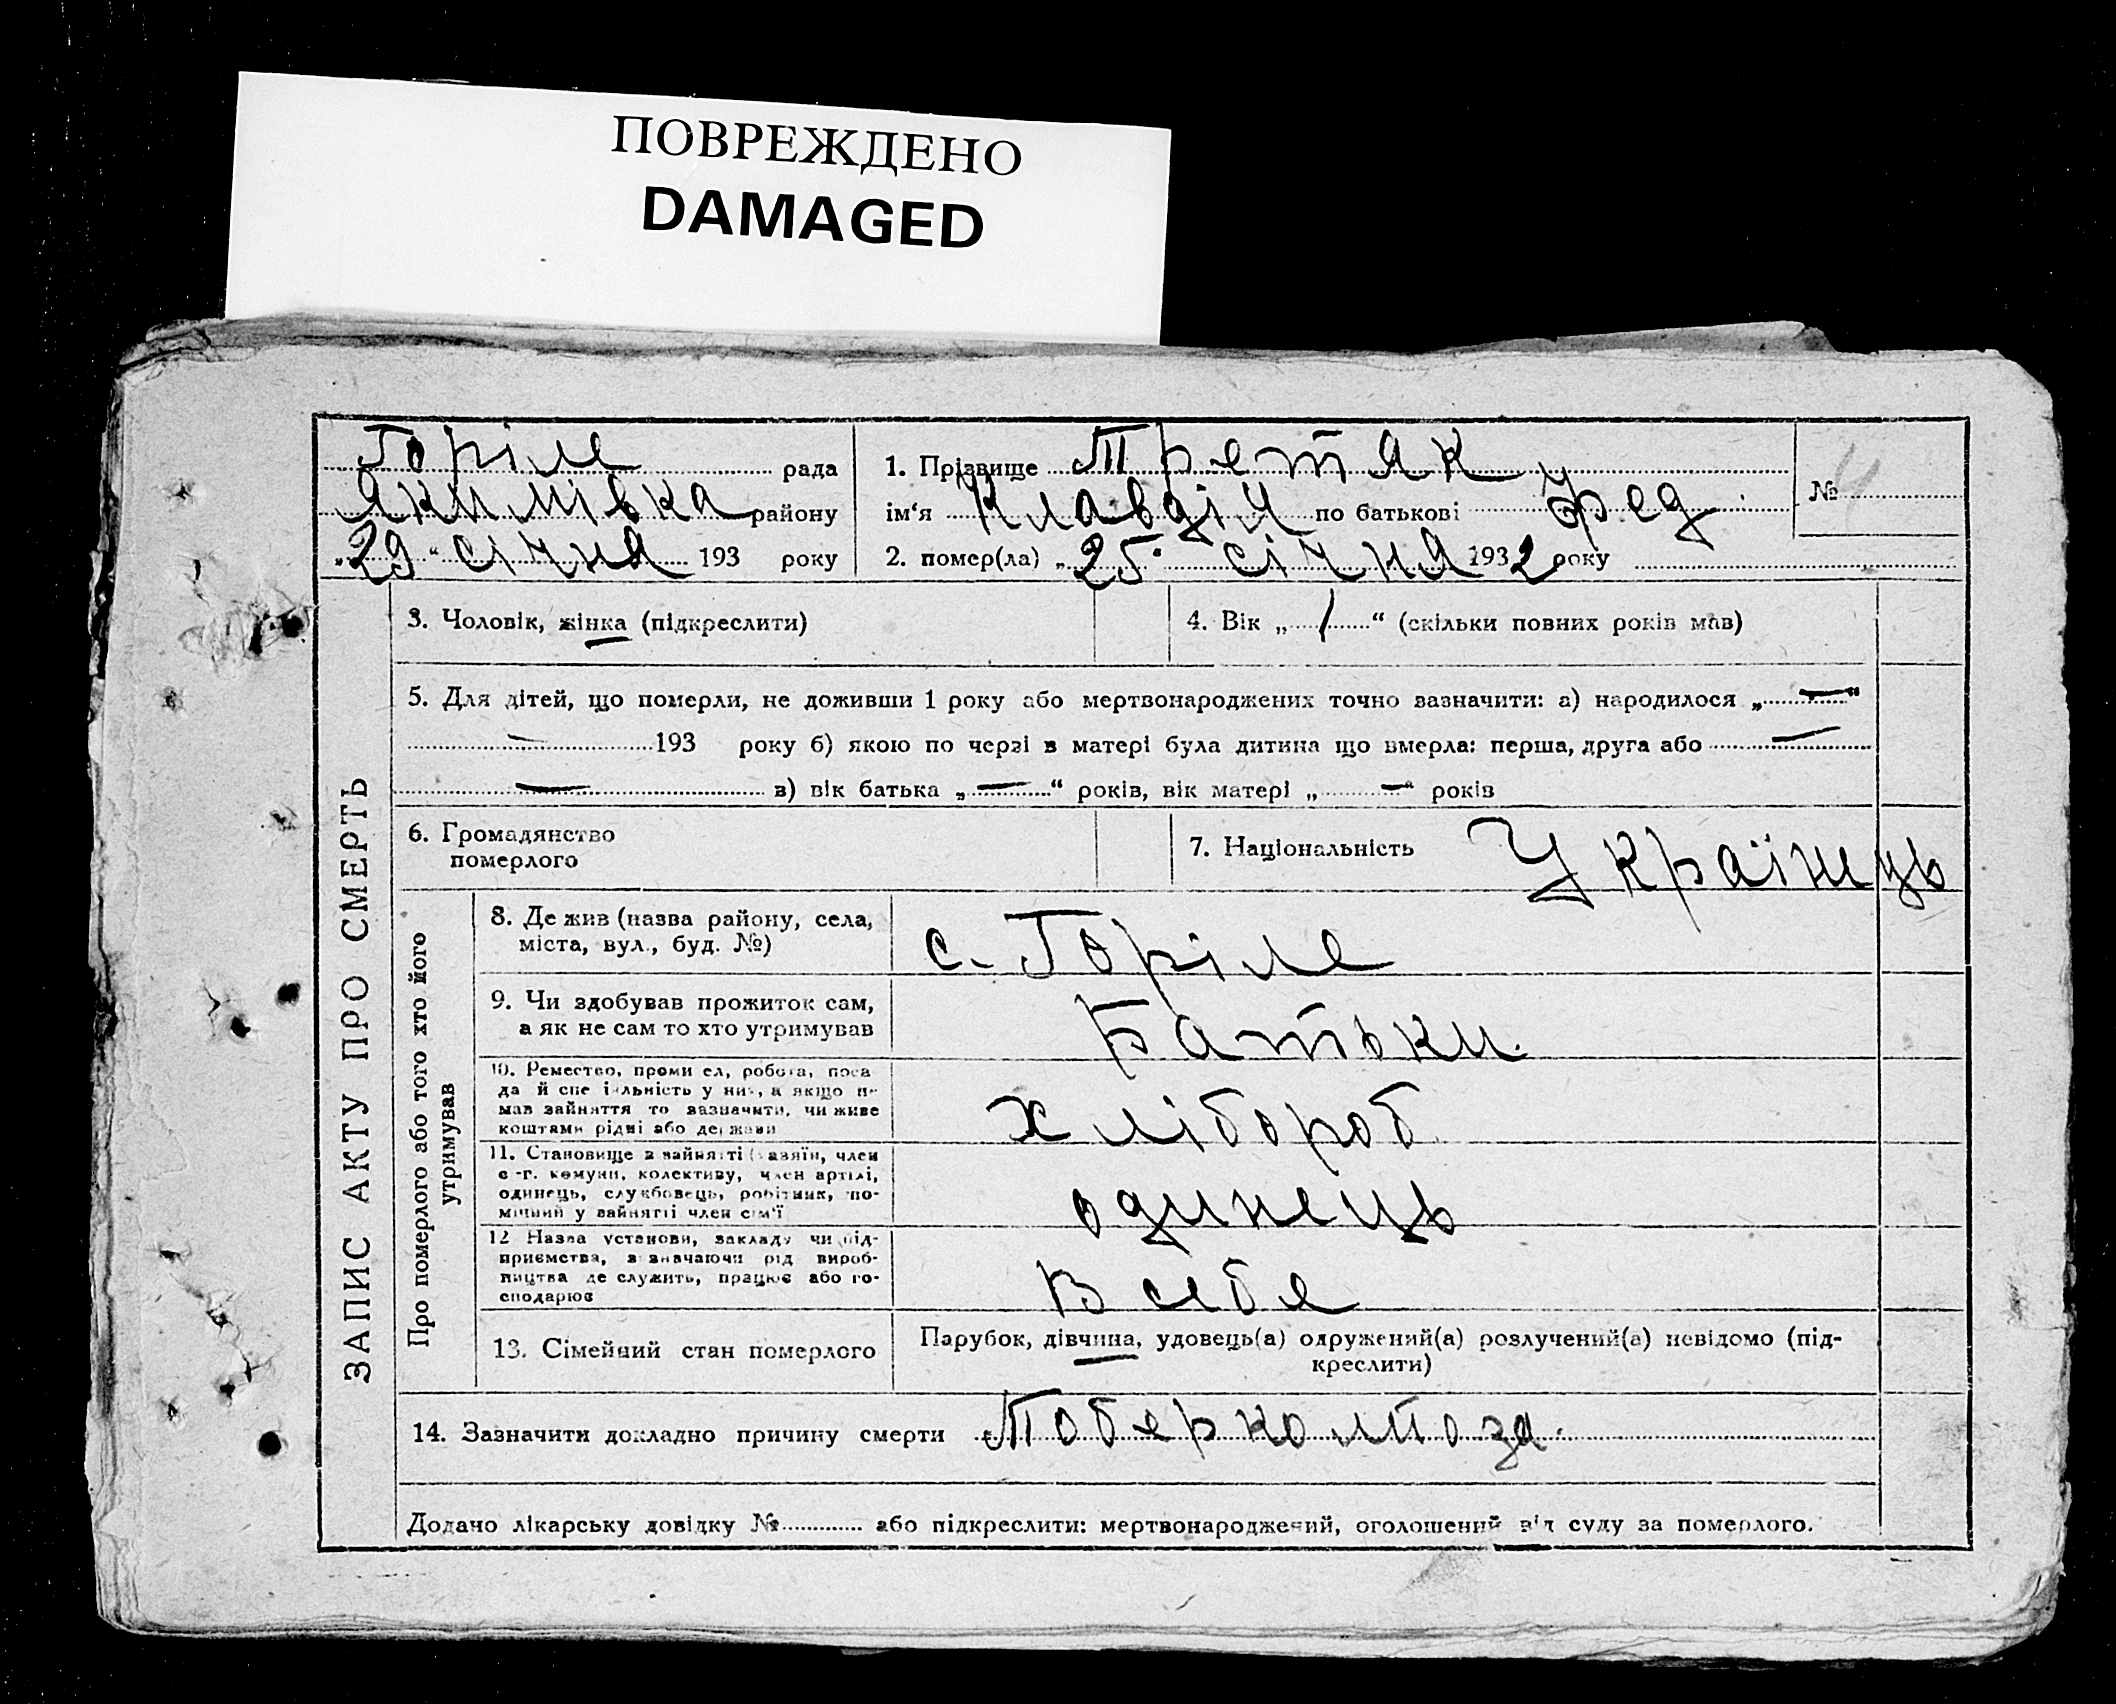 ПОВРЕЖДЕНО
DAMAGED
Горіле рада
Якимівка району
„29“ січня 193 року
1. Прізвище Третяк
ім‘я Клавдія по батькові Фед.
2. помер(ла) „25. січня 1932 року
№ 4
ЗАПИС АКТУ ПРО СМЕРТЬ
3. Чоловік, жінка (підкреслити)
4. Вік „1“ (скільки повних років мав)
5. Для дітей, що померли, не доживши 1 року або мертвонароджених точно вазначити: а) народилося „—“
— 193 року б) якою по черзі в матері була дитина що вмерла: перша, друга або —
— в) вік батька „—“ років, вік матері „—“ років
6. Громадянство
померлого
7. Національність Українець
Про померлого або того хто його
утримував
8. Де жив (назва району, села,
міста, вул., буд. №)
с. Горіле
9. Чи здобував прожиток сам,
а як не сам то хто утримував
Батьки.
10. Ремество, проми ел, робота, поса
да й спе іяльність у них, а якщо не
мав зайняття то вазначити, чи живе
коштами рідні або держави
хлібороб.
11. Становище в зайнятті (хазяїн, член
с-г. комуни, колективу, член артілі,
одинець, службовець, робітник, по-
мічний у вайнятті член сім‘ї
одинець
12 Назва установи, закладу чи під-
приємства, взначаючи рід вироб-
ництва де служить, працює або го-
сподарює
в себе
13. Сімейний стан померлого
Парубок, дівчина, удовець(а) одружений(а) розлучений(а) невідомо (під-
креслити)
14. Зазначити докладно причину смерти Тоберкольоза.
Додано лікарську довідку № або підкреслити: мертвонароджений, оголошений від суду за померлого.